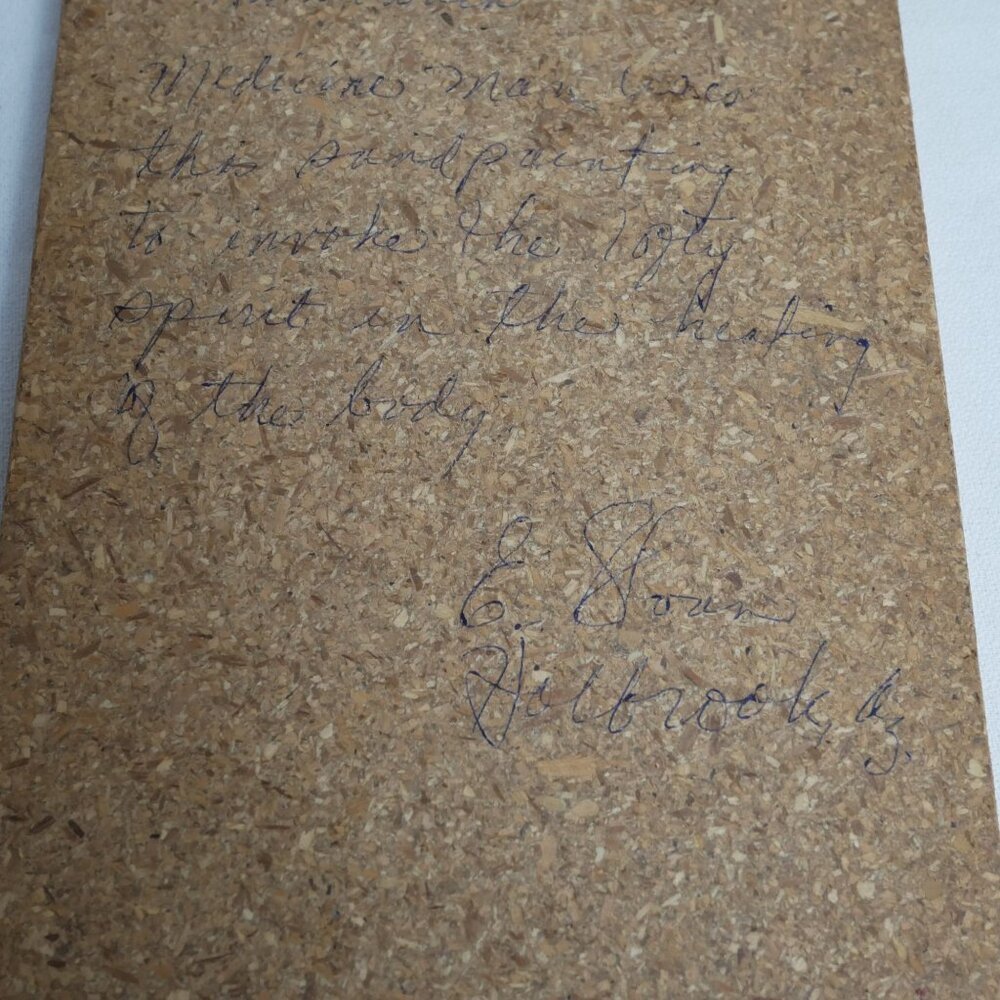 Medicine Man uses
this sandpainting
to invoke the lofty
spirit in the healing
of the body.
E.
Holbrook, Az.